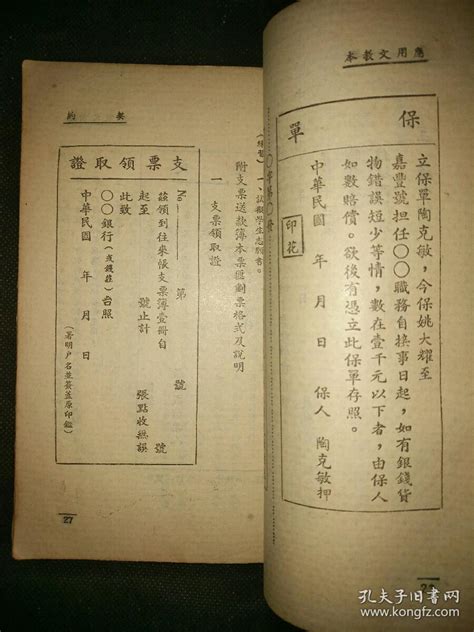 應用文教本
保單
立保單陶克敏，今保姚大耀至
嘉豐號担任〇〇職務自接事日起，如有銀錢貨
物錯誤短少等情，數在壹千元以下者，由保人
如數賠償。欲後有憑立此保單存照。
中華民國　年　月　日　保人　陶克敏押
印花
（練習）一、試擬學生志願書。
附支票送款簿本票匯劃票格式及說明
一　支票領取證
契約
支票領取證
No　第　號
茲領到往來帳支票簿壹冊自　號
起至　號止計　張點收無誤
此致
〇〇銀行（或錢莊）台照
中華民國　年　月　日
（署明户名並簽蓋原印鑑）
27
孔夫子旧书网
kongfz.com